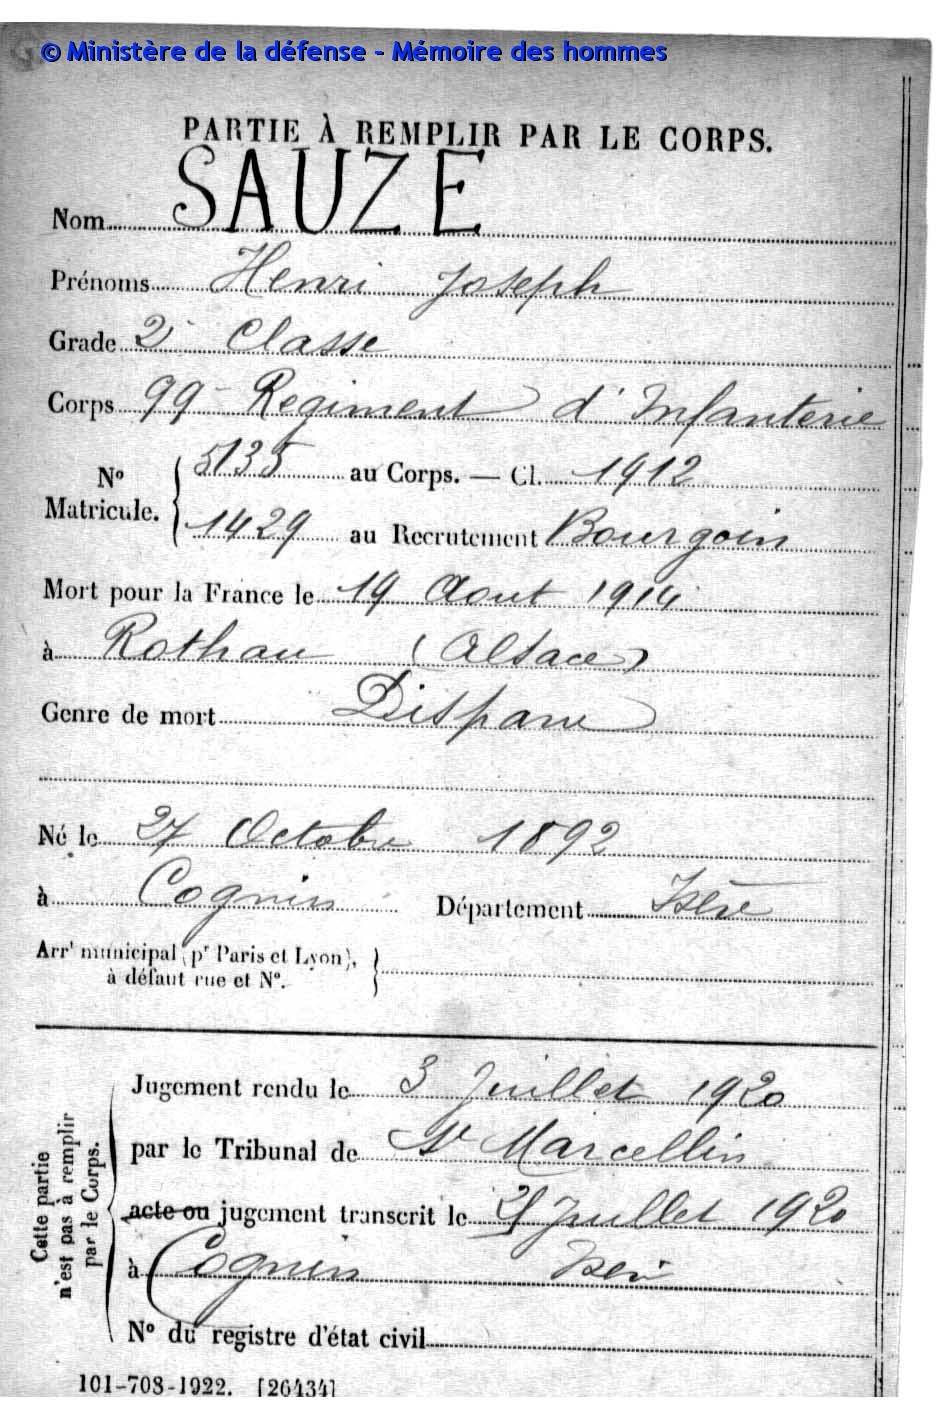 © Ministère de la défense - Mémoire des hommes
PARTIE À REMPLIR PAR LE CORPS.
Nom SAUZE
Prénoms Henri Joseph
Grade 2e Classe
Corps 99e Regiment d'Infanterie
No Matricule. { 5135 au Corps. — Cl. 1912
1429 au Recrutement Bourgoin
Mort pour la France le 19 Aout 1914
à Rothau (Alsace)
Genre de mort Disparu
Né le 27 Octobre 1892
à Cognin Département Isère
Arrt municipal (pr Paris et Lyon), à défaut rue et No. }
Cette partie n'est pas à remplir par le Corps.
Jugement rendu le 3 Juillet 1920
par le Tribunal de St Marcellin
acte ou jugement transcrit le Juillet 1920
à Cognin Isère
No du registre d'état civil
101-708-1922. [26434]